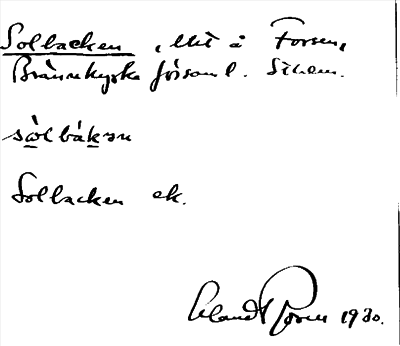 Solbacken, litt å Forsen,
Brännkyrka församl. Sthem.
sòlbákən
Solbacken ek.
Erland Rosell 1930.